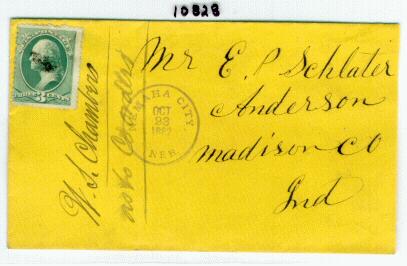 10828
THREE CENTS
W. S. Chambers
NEMAHA CITY.
OCT
23
1882
NEB.
Mr E. P Schlater
Anderson
madison co
Ind